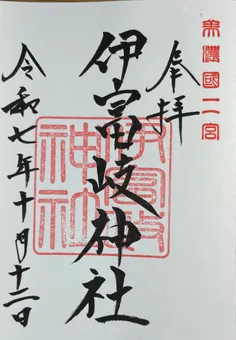 美濃國二宮
奉拝
伊富岐神社
伊富岐
神社
令和七年十月十二日